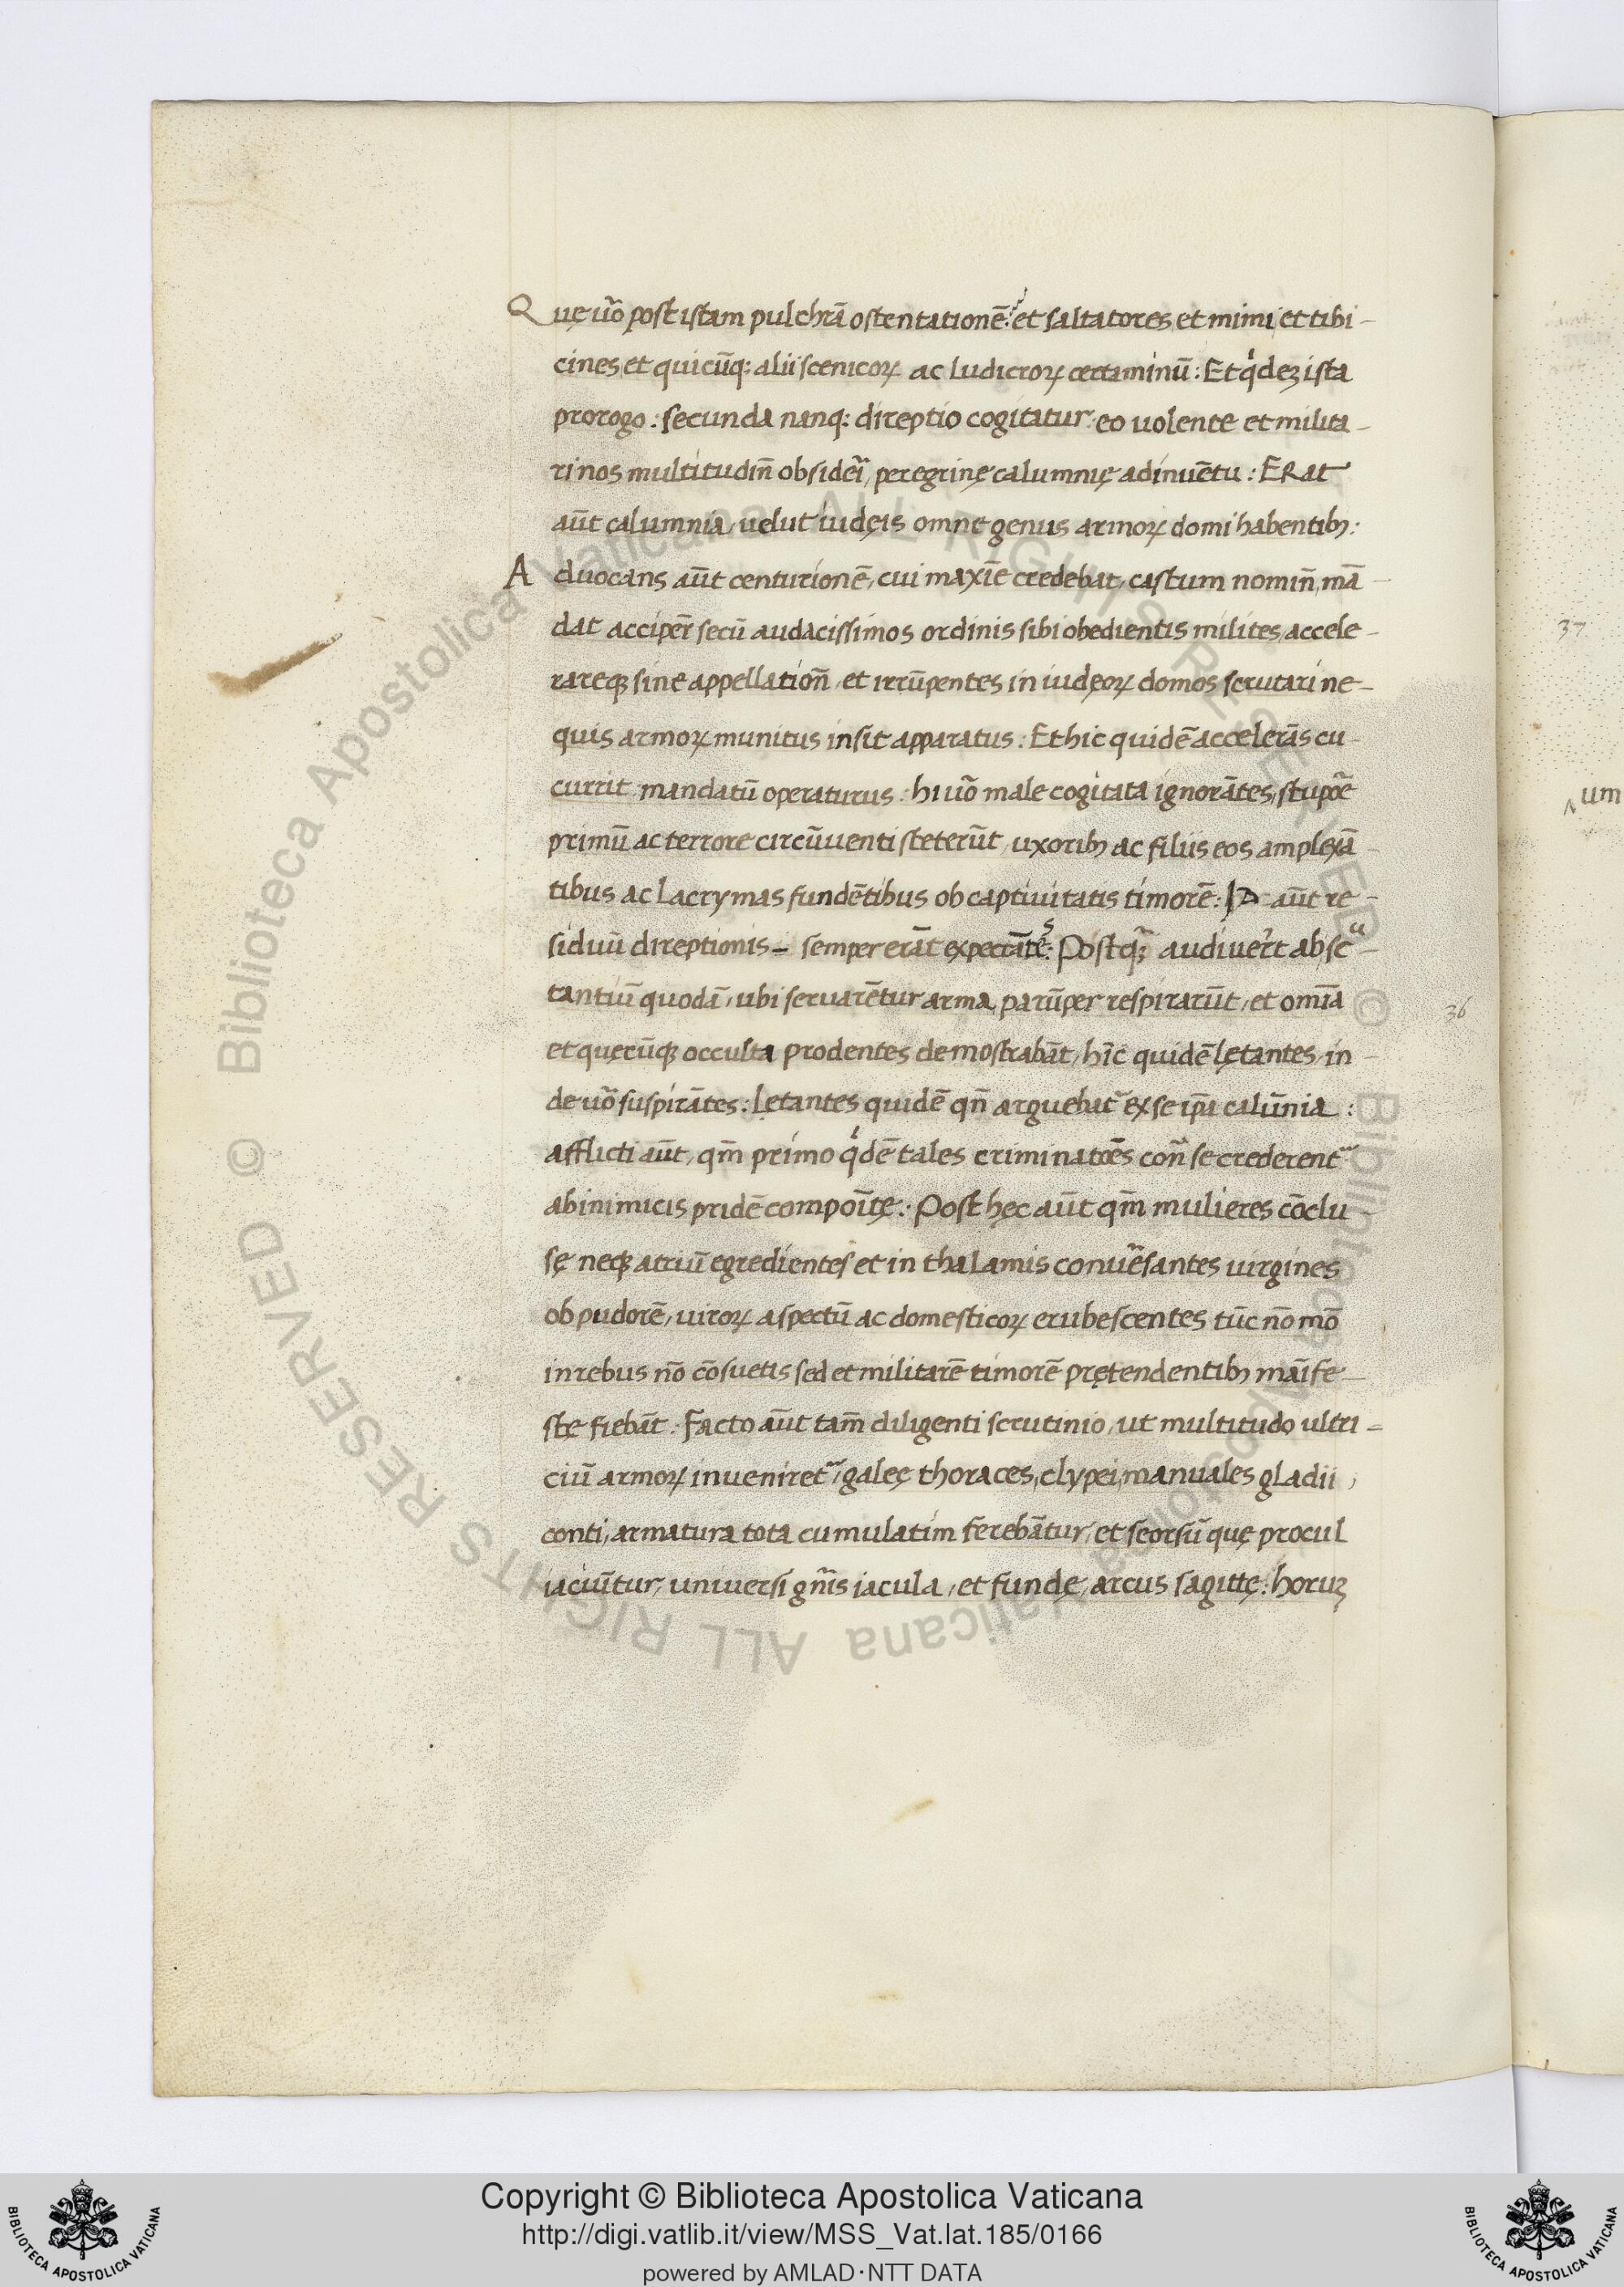 Quę uo᷃ post istam pulchrā ostentationē: et saltatores, et mimi, et tibi-
cines, et quicūq; alii scenicoꝝ ac ludicroꝝ certaminū: Et qͥdeꝫ ista
prorogo: secunda nanq; direptio cogitatur eo uolente et milita-
ri nos multitudin̄ obsideri, peregrinę calumnię adinuētu: ERat
aūt calumnia, uelut iudęis omne genus armoꝝ domi habentibꝫ:
Aduocans aūt centurionē, cui maxīe credebat, castum nomin̄, mā-
dat acciper̄ secū audacissimos ordinis sibi obedientis milites, accele-
rareqꝫ sine appellation̄, et irrūpentes in iudęoꝝ domos scrutari ne-
quis armoꝝ munitus insit apparatus: Et hic quidē accelerās cu-
currit mandatū operaturus: hi uo᷃ male cogitata ignorātes, stupo᷃e
primū ac terrore circūuenti steterūt, uxoribꝫ ac filiis eos amplexā-
tibus ac lacrymas fundētibus ob captiuitatis timorē: Id aūt re-
siduū direptionis - semper erāt expectātēs: Postqꝫ᷃ audiuer̄t ab sc-
tantiū quodā, ubi seruarētur arma, parūper respirarūt, et omīa
et quęcūqꝫ occulta prodentes demostrabāt, hīc quidē lętantes, in-
de uo᷃ suspirātes: lętantes quidē qn̄ arguebat᷃ ex se ip̄a calūnia:
afflicti aūt, qm̄ primo qͥdē tales criminato᷃es con᷃ se crederent᷃
ab inimicis pridē compoītę: Post hęc aūt qm̄ mulieres cōclu-
sę neqꝫ atriū egredientes et in thalamis conue᷃santes uirgines
ob pudorē, uiroꝝ aspectū ac domesticoꝝ erubescentes tūc nō mō
in rebus nō cōsuetis sed et militarē timorē prętendentibꝫ māife-
stę fiebāt. Facto aūt tam̄ diligenti scrutinio, ut multitudo ultri-
ciū armoꝝ inueniret᷃, galeę thoraces, clypei, manuales gladii,
conti, armatura tota cumulatim ferebātur, et seorsū quę procul
iaciūtur, uniuersi gn̄is iacula, et fundę, arcus sagittę: horuꝫ
37
um
36
Copyright © Biblioteca Apostolica Vaticana
http://digi.vatlib.it/view/MSS_Vat.lat.185/0166
powered by AMLAD·NTT DATA
© Biblioteca Apostolica Vaticana ALL RIGHTS RESERVED
© Biblioteca Apostolica Vaticana ALL RIGHTS RESERVED
BIBLIOTECA APOSTOLICA VATICANA
BIBLIOTECA APOSTOLICA VATICANA